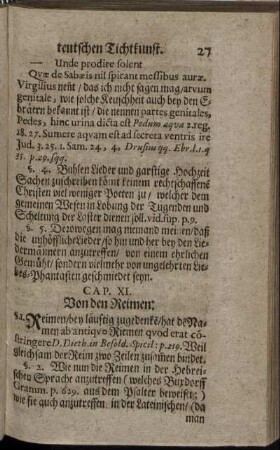 teutschen Tichtkunst. 27
— Unde prodire solent
Qvæ de Sabæis nil spirant messibus auræ.
Virgilius neñt / das ich nicht sagen mag / arvum
genitale, wie solche Keuschheit auch bey den E-
bräern bekannt ist / die nennen partes genitales,
Pedes, hinc urina dicta est Pedum aqva 2. reg.
18. 27. Sumere aqvam est ad secreta ventris ire
Jud. 3. 25. 1. Sam. 24, 4, Drusius qq. Ebr. l. 1. q
25. p. 29. sqq.
§. 4. Buhlen Lieder und garstige Hochzeit
Sachen zuschreiben kömt keinem rechtschaffene
Christen viel weniger Poeten zu / welcher dem
gemeinen Wesen in Lobung der Tugenden und
Scheltung der Laster dienen soll. vid. sup. p. 9.
§. 5. Deßwegen mag niemand meinen / daß
die unhöfflichelieder / so hin und her bey den Lie-
dermännern anzutreffen / von einem ehrlichen
Gemüht / sondern vielmehr von ungelehrten Lie-
bes-Phantasten geschmiedet seyn.
CAP. XI.
Von den Reimen.
§ 1. Reimen / bey läuftig zugedenkē / hat dē Na-
men ab antiqvo Riemen qvod erat cō-
stringere D. Dieth. in Besold. Spicil: p. 219. Weil
gleichsam der Reim zwo Zeilen zusam̃en bindet.
§. 2. Wie nun die Reimen in der Hebrei-
schen Sprache anzutreffen (welches Buxdorff
Gramm. p. 629. aus dem Psalter beweiset;)
wie sie auch anzutreffen in der Lateinischen / (da
man